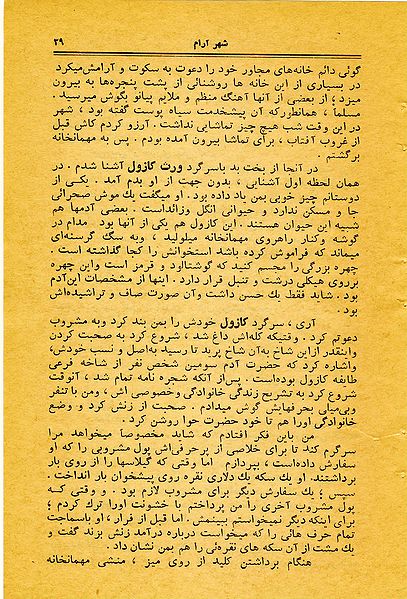 شهر آرام ۳۹
گوئی دائم خانه‌های مجاور خود را دعوت به سکوت و آرامش میکرد
در بسیاری از این خانه ها روشنائی از پشت پنجره‌ها به بیرون
میزد ؛ از بعضی از آنها آهنگ منظم و ملایم پیانو بگوش میرسید .
مسلماً ، همانطورکه آن پیشخدمت سیاه پوست گفته بود ، شهر
در این وقت شب هیچ چیز تماشایی نداشت . آرزو کردم کاش قبل
از غروب آفتاب ، برای تماشا بیرون آمده بودم . پس به مهمانخانه
برگشتم .
در آنجا از بخت بد باسرگرد ورث کازول آشنا شدم . در
همان لحظه اول آشنایی ، بدون جهت از او بدم آمد . یکی از
دوستانم چیز خوبی بمن یاد داده بود . او میگفت یك موش صحرائی
جا و مسکن ندارد و حیوانی انگل وزائداست . بعضی آدمها هم
شبیه این حیوان هستند . این کازول هم یکی از آنها بود . مدام در
گوشه وکنار راهروی مهمانخانه میلولید ، وبه سگ گرسنه‌ای
میماند که فراموش کرده باشد استخوانش را کجا گذاشته است .
چهره بزرگی را مجسم کنید که گوشتالود و قرمز است واین چهره
برروی هیکلی درشت و تنبل قرار دارد . اینها از مشخصات این‌آدم
بود . شاید فقط یك حسن داشت وآن صورت صاف و تراشیده‌اش
بود .
آری ، سرگرد کازول خودش را بمن بند کرد وبه مشروب
دعوتم کرد . وقتیکه کله‌اش داغ شد ، شروع کرد به صحبت کردن
واینقدر ازاین شاخ به‌آن شاخ پرید تا رسید به‌اصل و نسب خودش،
واشاره کرد که حضرت آدم سومین شخص نفر از شاخه فرعی
طایفه کازول بوده‌است . پس‌از آنکه شجره نامه تمام شد ، آنوقت
شروع کرد به تشریح زندگی خانوادگی وخصوصی اش ، ومن با تنفر
وبی‌میلی بحرفهایش گوش میدادم . صحبت از زنش کرد و وضع
خانوادگی اورا هم تا خود حضرت حوا روشن کرد .
من باین فکر افتادم که شاید مخصوصا میخواهد مرا
سرگرم کند تا برای خلاصی از پرحرفی‌اش پول مشروبی را که او
سفارش داده‌است ، بپردازم . اما وقتی که گیلاسها را از روی بار
برداشتند، او یك سکه یك دلاری نقره روی پیشخوان بار انداخت .
سپس ؛ یك سفارش دیگر برای مشروب لازم بود . و وقتی کـه
پول مشروب آخری را من پرداختم با خشونت اورا ترك کردم ؛
برای اینکه دیگر نمیخواستم ببینمش . اما قبل از فرار ، او باسماجت
تمام حرف هائی را که میخواست درباره درآمد زنش بزند گفت و
یك مشت از آن سکه های نقره‌ئی را هم بمن نشان داد .
هنگام برداشتن کلید از روی میز ، منشی مهمانخانه